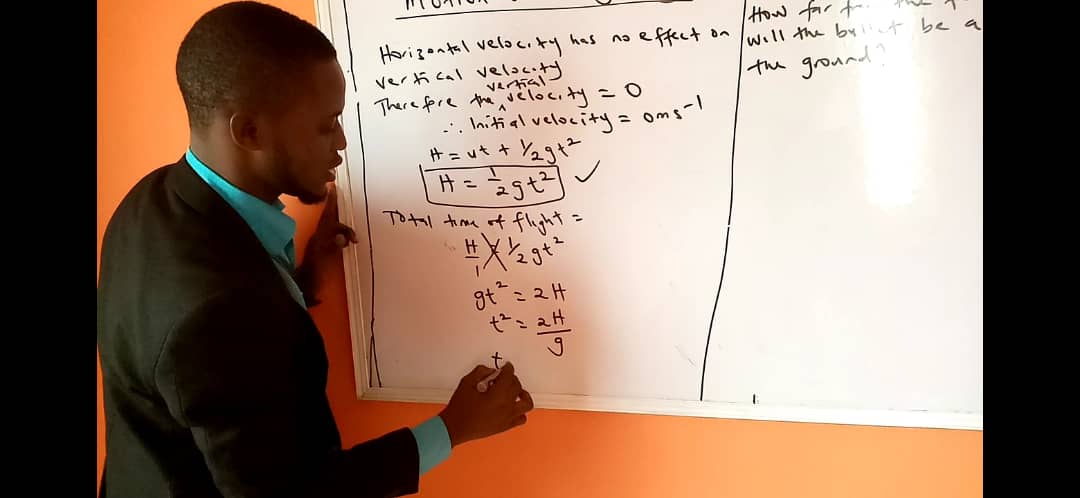 Horizontal velocity has no effect on
vertical velocity
vertial
Therefore the ^ velocity = 0
∴ Initial velocity = 0ms⁻¹
H = ut + 1/2gt²
H = 1/2gt² ✓
Total time of flight =
H/1 X 1/2gt²
gt² = 2H
t² = 2H/g
t
How far
will the be a
the ground?